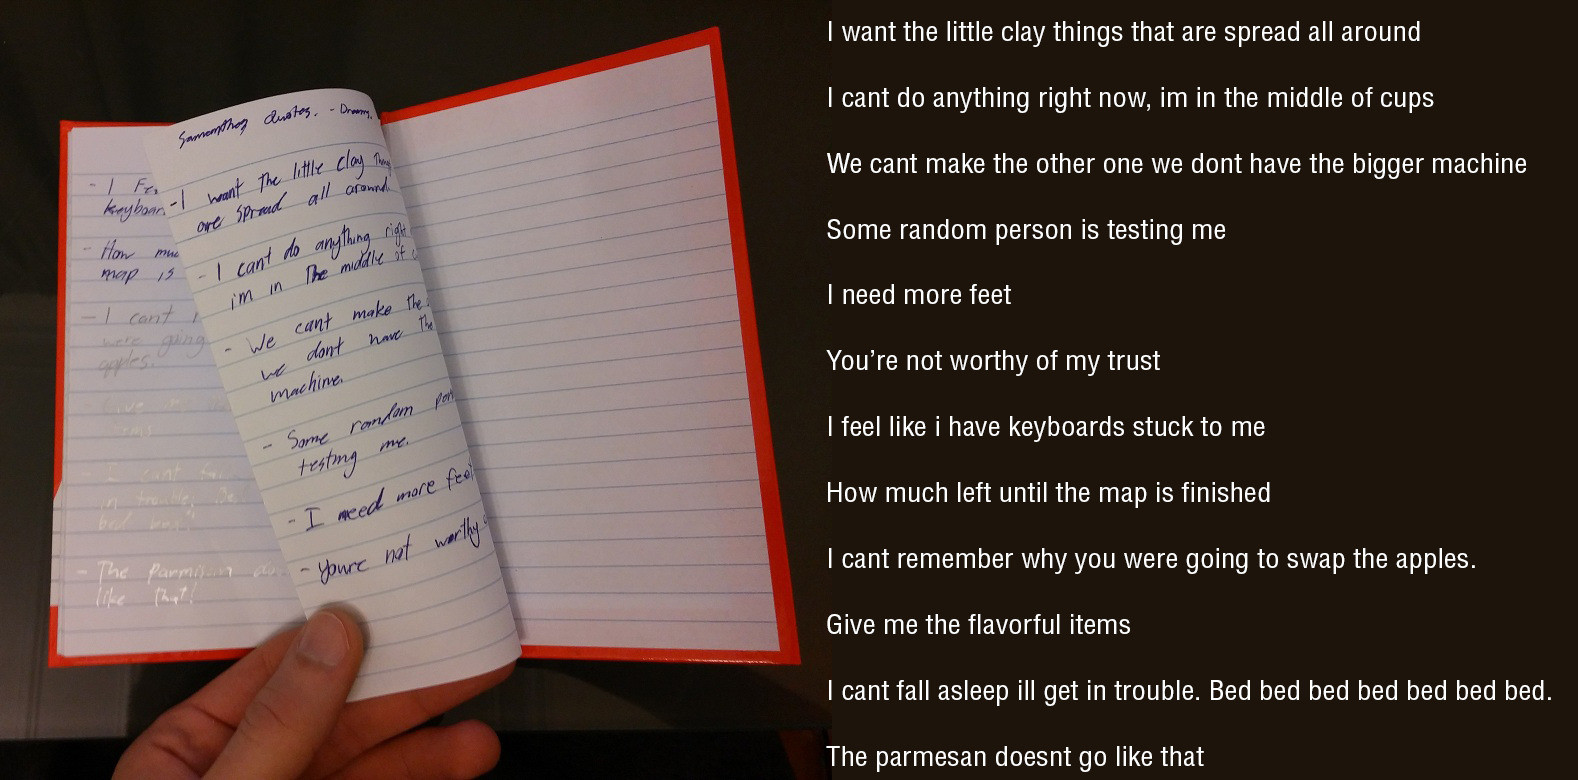 Samanthas Quotes. - Dreams.
- I want the little clay
are spread all around.
- I cant do anything right
im in the middle of
- We cant make the
we dont have the
machine.
- Some random
testing me.
- I need more feet
- Youre not worthy
- I
keyboar
- How muc
map is
- I cant
were going
apples.
- I cant
in trouble.
bed bed
- The
like that!
I want the little clay things that are spread all around
I cant do anything right now, im in the middle of cups
We cant make the other one we dont have the bigger machine
Some random person is testing me
I need more feet
You’re not worthy of my trust
I feel like i have keyboards stuck to me
How much left until the map is finished
I cant remember why you were going to swap the apples.
Give me the flavorful items
I cant fall asleep ill get in trouble. Bed bed bed bed bed bed bed.
The parmesan doesnt go like that